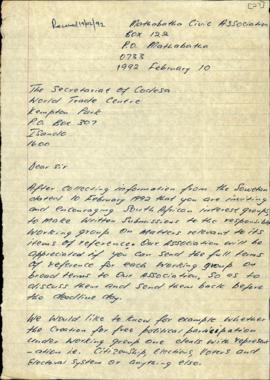 [27]
Received 14/02/92
Mathabatha Civic Association
BOX 122
P.O. Mathabatha
0733
1992 February 10
The Secretariat of Codesa
World Trade Centre
Kempton Park
P.O. Box 307
Isando
1600
Dear Sir
After collecting information from the Sowetan
dated 10 February 1992 that you are inviting
and encouraging South African interest groups
to make written submissions to the responsible
working group on matters relevant to its
items of reference. Our Association will be
appreciated if you can send the full terms
of reference for each working group on
broad terms to our Association, so as to
discuss them and send them back before
the deadline day.
We would like to know for example whether
the Creation for free political participation
under working group one deals with represent-
ation i.e. Citizenship, Elections, Voters and
Electoral System or anything else.